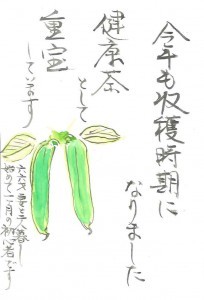 今年も収穫時期に
なりました
健康茶
として
重宝
しています
始めて一ヶ月の初心者です